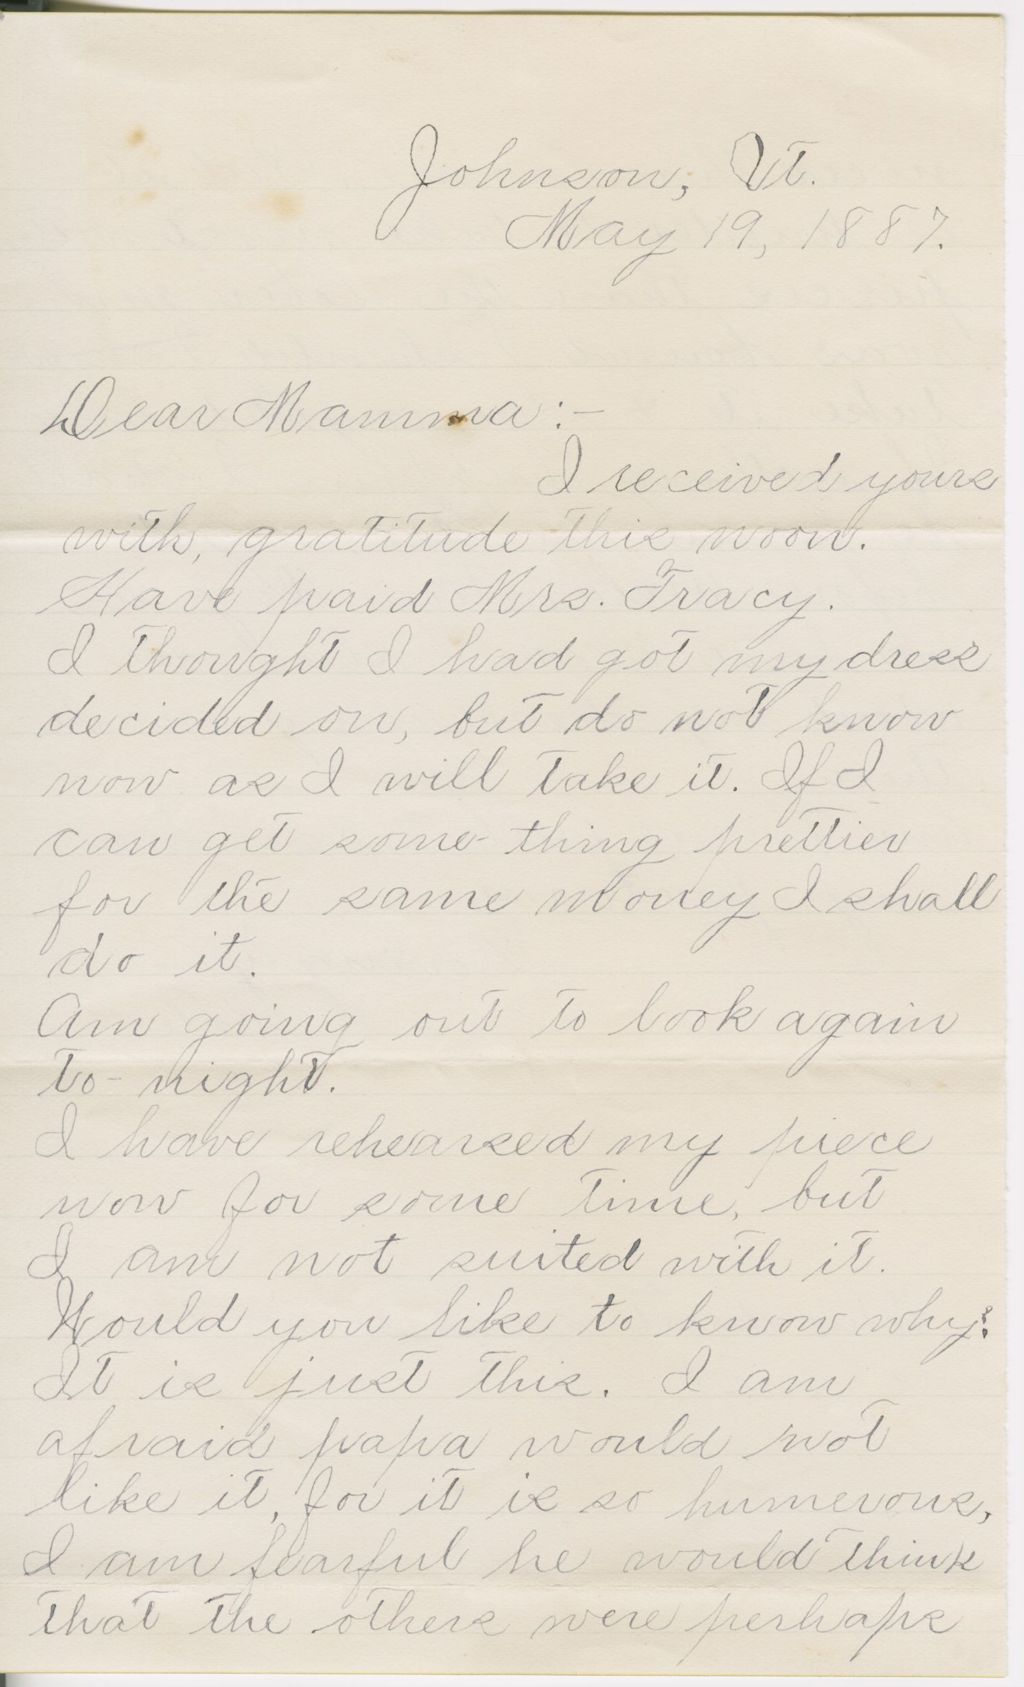 Johnson, Vt.
May 19, 1887.
Dear Mamma:-
I received yours
with, gratitude this noon.
Have paid Mrs. Tracy.
I thought I had got my dress
decided on, but do not know
now as I will take it. If I
can get some-thing prettier
for the same money I shall
do it.
Am going out to look again
to-night.
I have rehearsed my piece
now for some time, but
I am not suited with it.
Would you like to know why?
It is just this. I am
afraid papa would not
like it, for it is so humerous,
I am fearful he would think
that the others were perhaps